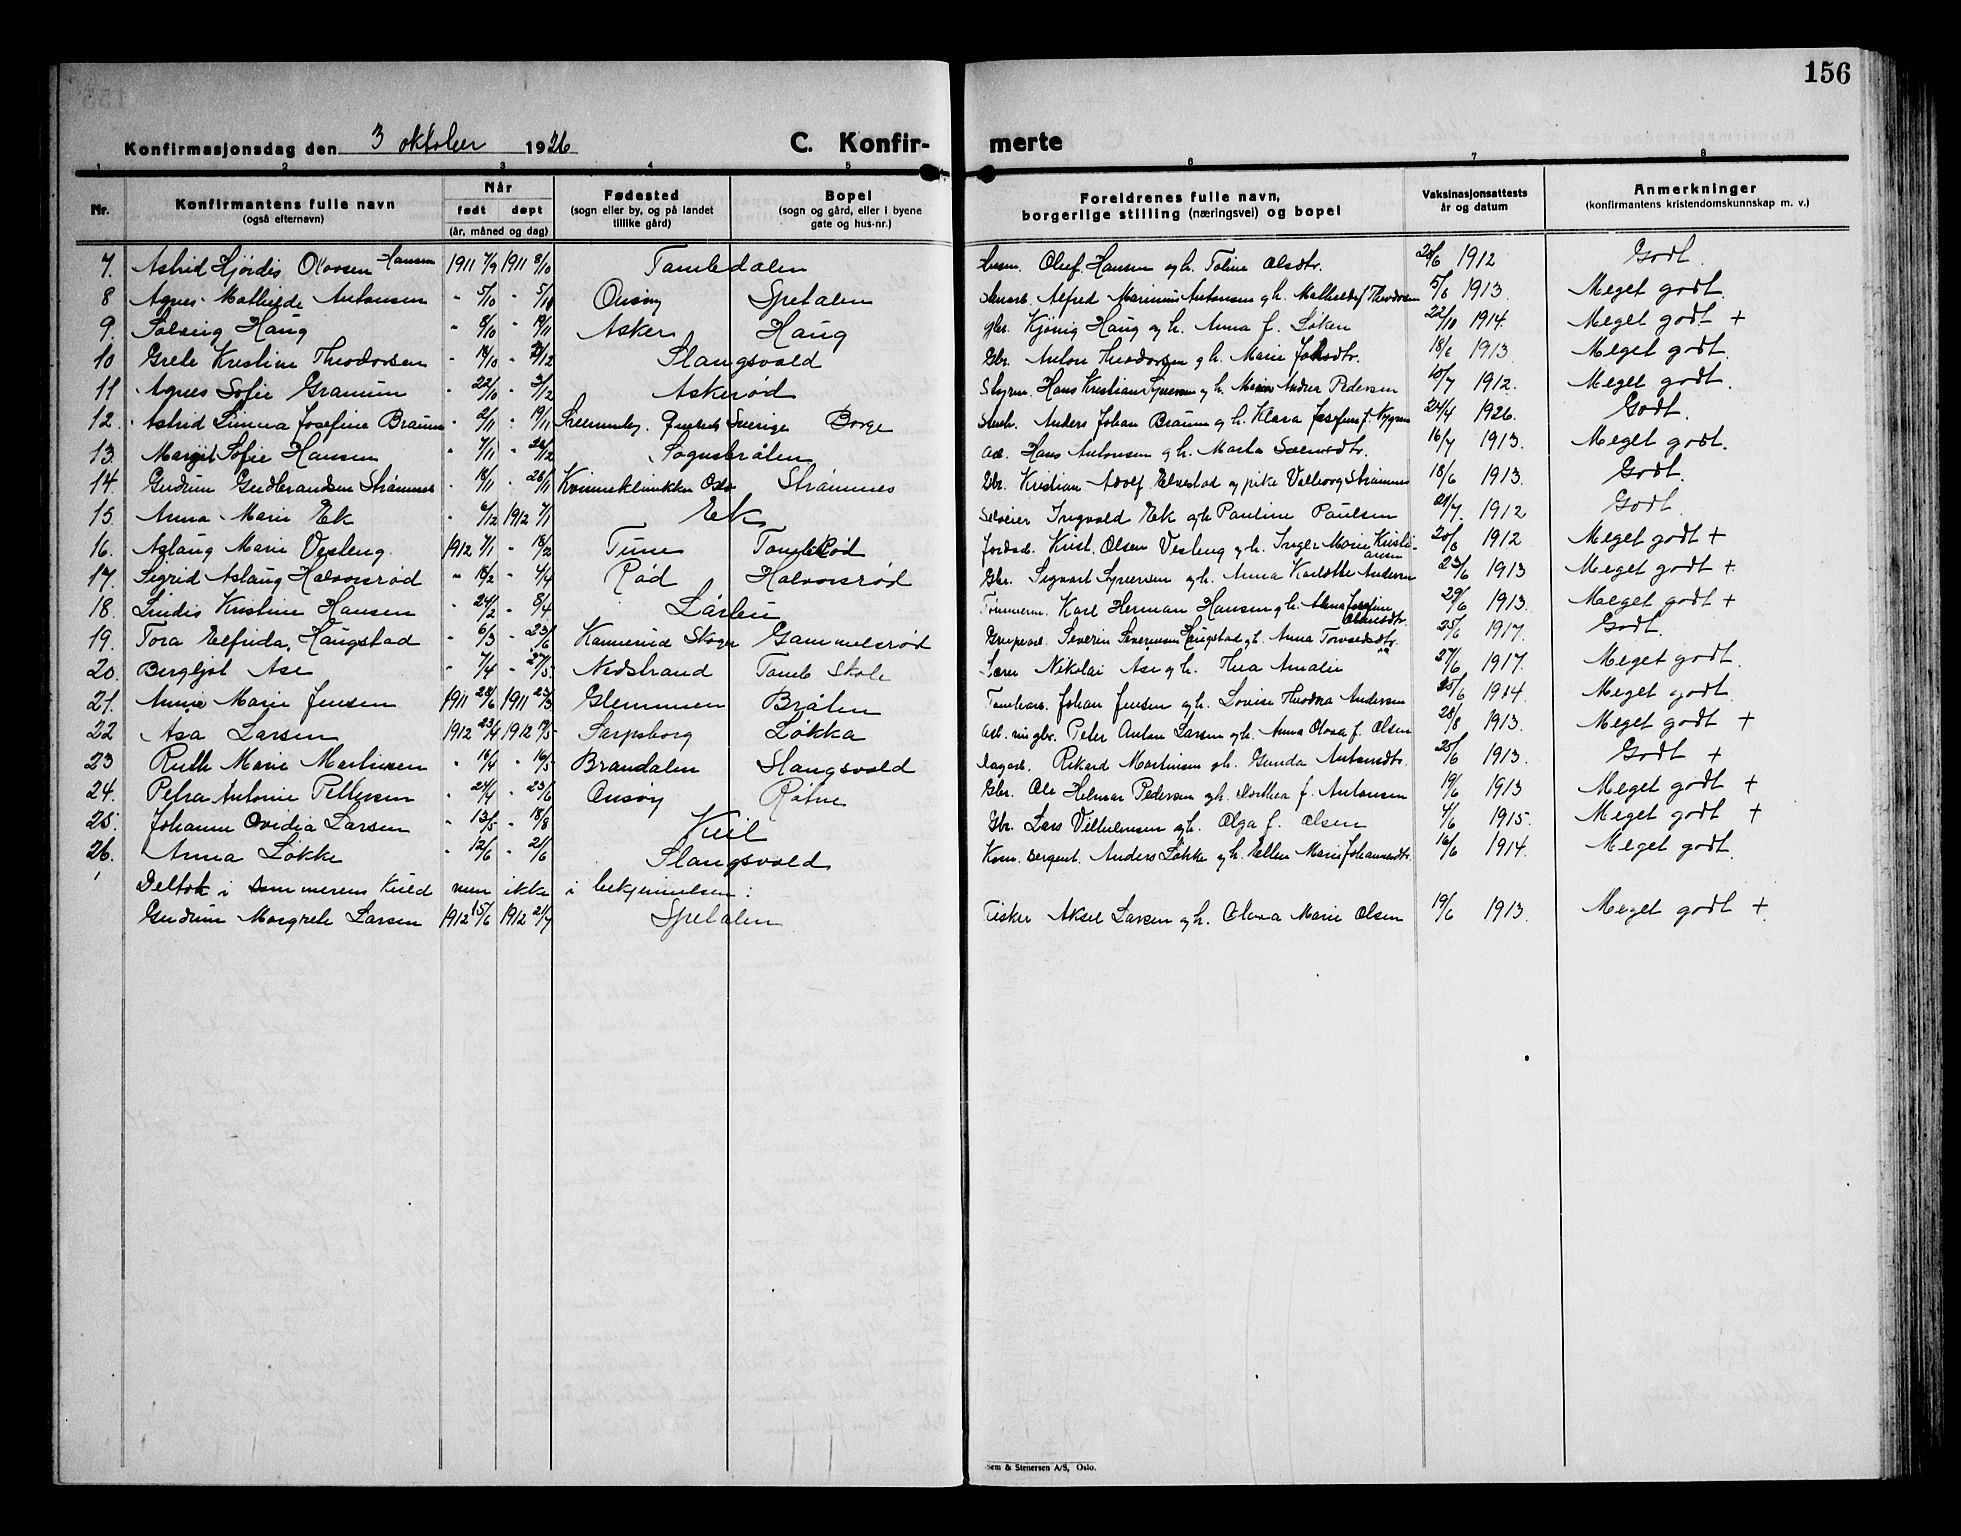 156
Konfirmasjonsdag den 3 oktober 1926 C. Konfir- merte
1 2 3 4 5 6 7 8
Nr. Konfirmantens fulle navn (også efternavn) Når født døpt (år, måned og dag) Fødested (sogn eller by, og på landet tillike gård) Bopel (sogn og gård, eller i byene gate og hus-nr.) Foreldrenes fulle navn, borgerlige stilling (næringsvei) og bopel Vaksinasjonsattests år og datum Anmerkninger (konfirmantens kristendomskunnskap m. v.)
7. Astrid Hjørdis Olovsen Hansen 1911 7/9 1911 8/10 Tombdalen Oluf Hansen og h. Toline Olsdtr. 1912 Godt.
8 Agnes Mathilde Antonsen " 5/10 - 5/11 Onsøy Spetalen Alfred Marinius Antonsen og h. Mathilde f Theodorsen 5/6 1913. Meget godt.
9. Solveig Haug " 8/10 - 19/11 Asker Haug gbr. Kjönig Haug og h. Anna f. Løken 22/10 1914. Meget godt +
10 Grete Kristine Theodorsen - 14/10 - /12 Slangsvold Gbr. Anton Theodorsen og h. Marie 18/6 1913. Meget godt.
11 Agnes Sofie Granum - 22/10 - 3/12 Askerød Styrm. Hans Kristian Syversen og h. Maren Andrea Pedersen 10/7 1912. Meget godt.
12. Astrid Linnea Josefine Braum - 2/11 - 19/11 Sverige Borge Anders Johan Braum og h. Klara Josefine f. Nygren 24/4 1926. Godt.
13. Margit Sofie Hansen " 7/11 - 26/12 Sognsbråten arb. Hans Antonsen og h. Marta 16/7 1913. Meget godt.
14. Gudrun Gudbrandsen Strømnes - 18/11 - 26/11 Kvinneklinikken Oslo Strømnes Gbr. Kristian Adolf Elvestad og pike Valborg Strømnes 18/6 1913. Godt.
15. Anna Marie Ek - 6/12 1912 7/1 Ek Selveier Ingvald Ek og h Pauline Paulsen 21/7 1912 Godt.
16. Aslaug Marie Vesteng. 1912 7/1 - 18/2 Tune Tomb Rød Jordarb. Krist. Olsen Vesteng og h. Inger Marie Kristiansen 20/8 1912 Meget godt +
17. Sigrid Aslaug Halvorsrød " 18/2 - 4/4 Rød Halvorsrød Gbr. Sigvart Syversen og h. Anna Karlotte Andersen 23/6 1913 Meget godt +
18. Lindis Kristine Hansen - 24/2 - 8/4 Lårbu Tømmerm. Karl Herman Hansen og h. Alma Josefine Olausdtr. 29/6 1913. Meget godt +
19. Tora Elfrida Haugstad - 6/3 - 23/6 Skoger Gammelsrød Severin Severinsen Haugstad og h. Anna 25/6 1917. Godt.
20. Bergljot Ase " 7/4 - 27/5 Nedstrand Tomb Skole Lærer Nikolai Ase og h. Thea Amalie 27/6 1917. Meget godt.
21. Annie Marie Jensen 1911 28/6 1911 23/3 Glemmen Bråten Johan Jensen og h. Lovise Theodora Andersen 25/6 1914. Meget godt.
22 Asa Larsen 1912 23/4 1912 19/5 Sarpsborg Løkka Peter Anton Larsen og h. Anna Olova f. Olsen 28/8 1913. Meget godt +
23 Ruth Marie Martinsen " 16/4 - 16/5 Brandalen Slangsvold Rikard Martinsen og h. Gunda Antonsdtr. 25/6 1913. Godt +
24. Petra Antonie Pettersen - 24/4 - 23/6 Onsøy Røtne Gbr. Ole Helmer Pedersen og h. Dorthea f. Antonsen 19/6 1913 Meget godt +
25. Johanne Ovidia Larsen - 13/5 - 18/8 Kiil Gbr. Lars Vilhelmsen og h. Olga f. Olsen 4/6 1915. Meget godt +
26. Anna Løkke - 12/6 - 21/6 Slangsvold Korn. sergent. Anders Løkke og h. Ellen Marie Johannesdtr. 16/6 1914. Meget godt.
Deltok i sommerens kuld men ikke i bekjennelsen:
Gudrun Margrete Larsen 1912 15/6 1912 21/7 Spetalen Fisker Aksel Larsen og h. Olava Marie Olsen 19/6 1913. Meget godt +.
Sem & Stenersen A/S, Oslo.